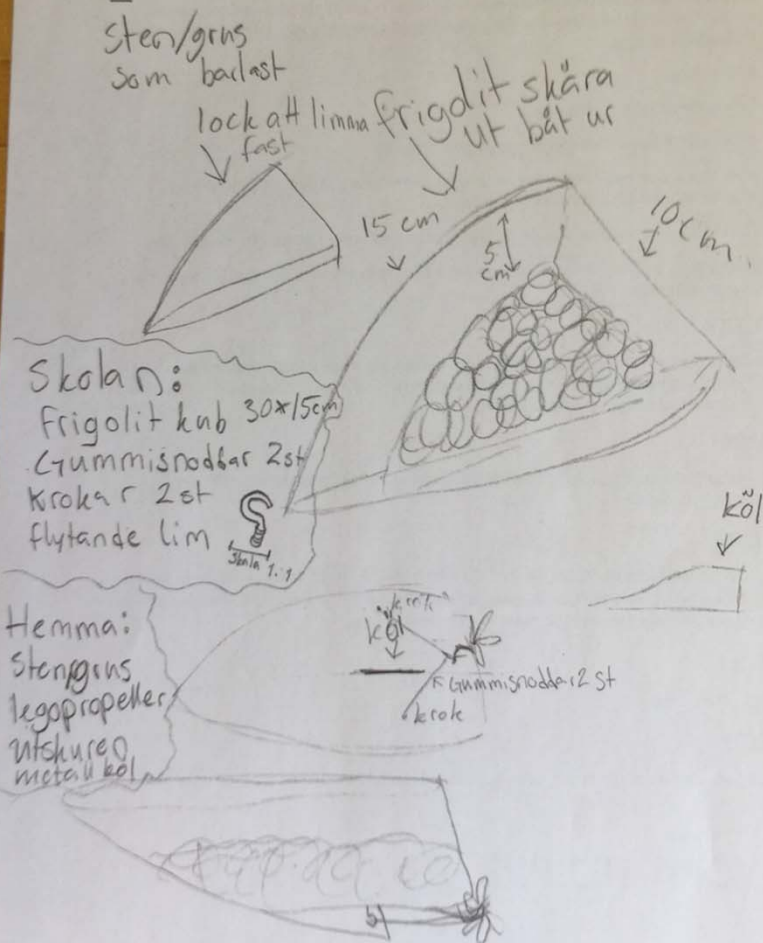 Sten/grus
som barlast
lock att limma
fast
frigolit skära
ut båt ur
15 cm
5
cm
10 cm
Skolan:
frigolit kub 30*15cm
Gummisnoddar 2st
krokar 2 st
flytande lim
Skala 1:1
köl
Hemma:
Sten/grus
legopropeller
utskuren
metall köl
krok
köl
Gummisnoddar 2 st
krok